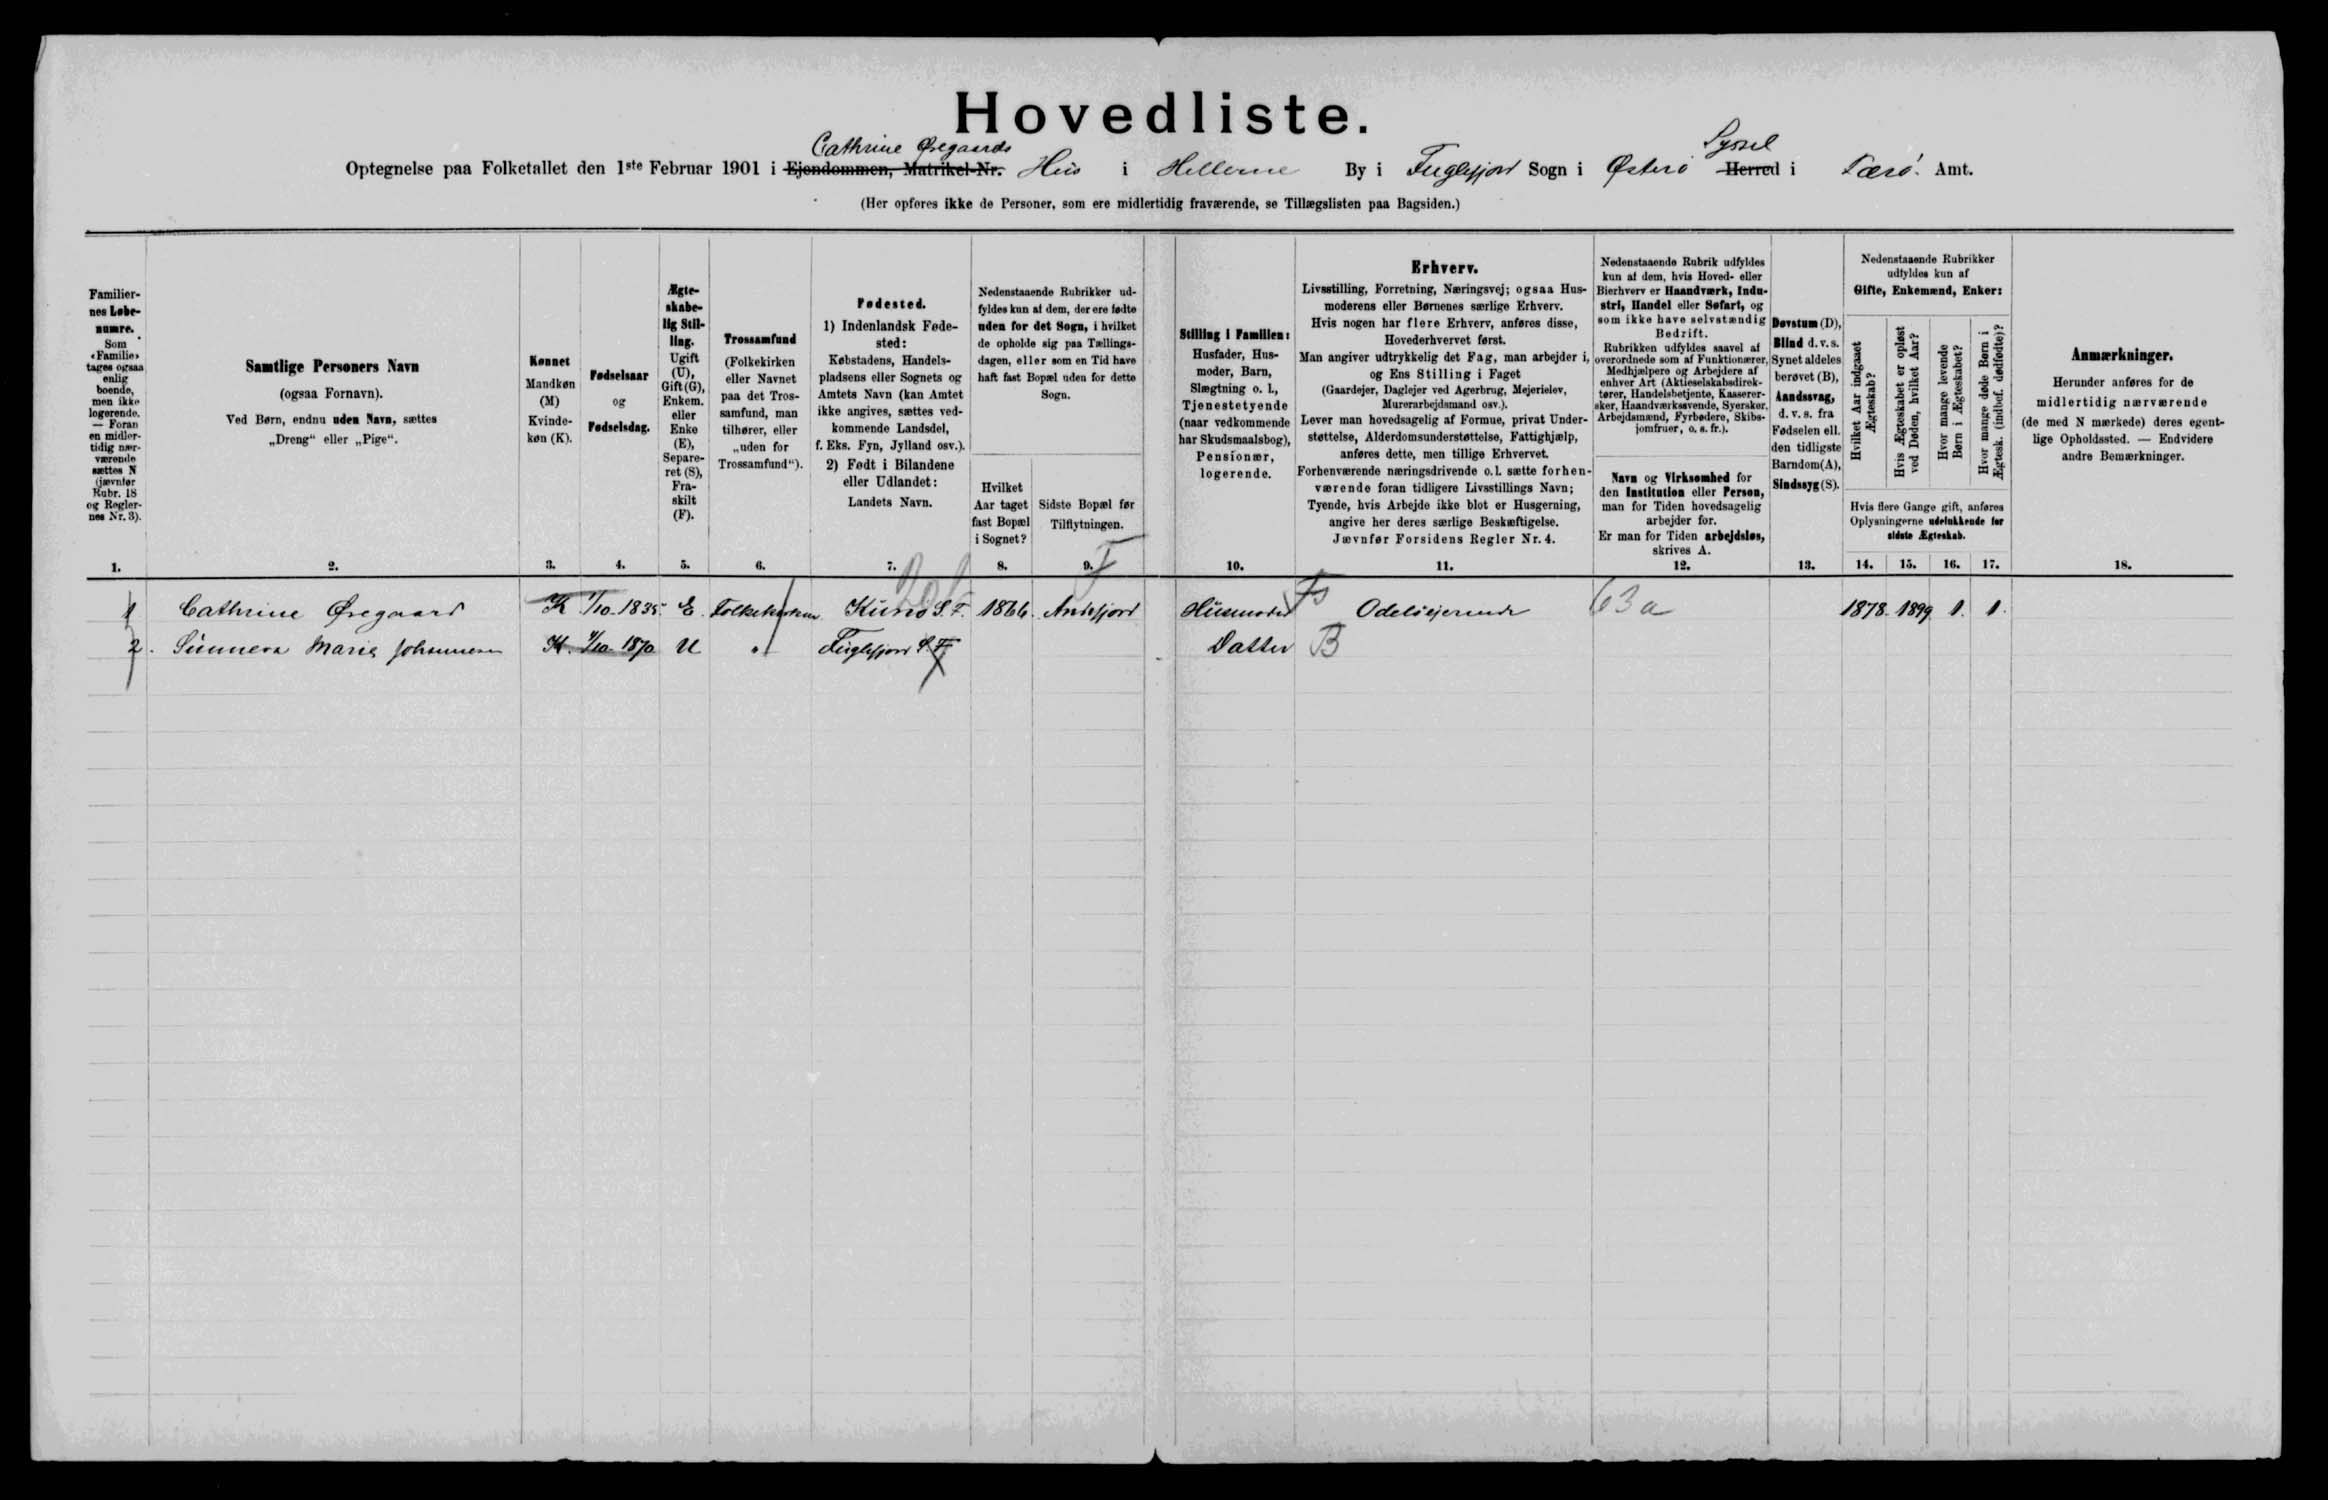 Hovedliste.
Cathrine Øregaards
Syssel
Optegnelse paa Folketallet den 1ste Februar 1901 i Ejendommen, Matrikel-Nr. Hus i Hellerne By i Fuglefjord Sogn i Østerø Herred i Færø. Amt.
(Her opføres ikke de Personer, som ere midlertidig fraværende, se Tillægslisten paa Bagsiden.)
Familier-
nes Løbe-
numre.
Som
«Familie»
tages ogsaa
enlig
boende,
men ikke
logerende.
— Foran
en midler-
tidig nær-
værende
sættes N
(jævnfør
Rubr. 18
og Regler-
nes Nr. 3).
Samtlige Personers Navn
(ogsaa Fornavn).
Ved Børn, endnu uden Navn, sættes
„Dreng“ eller „Pige“.
Kønnet
Mandkøn
(M)
Kvinde-
køn (K).
Fødselsaar
og
Fødselsdag.
Ægte-
skabe-
lig Stil-
ling.
Ugift
(U),
Gift (G),
Enkem.
eller
Enke
(E),
Separe-
ret (S),
Fra-
skilt
(F).
Trossamfund
(Folkekirken
eller Navnet
paa det Tros-
samfund, man
tilhører, eller
„uden for
Trossamfund“).
Fødested.
1) Indenlandsk Føde-
sted:
Købstadens, Handels-
pladsens eller Sognets og
Amtets Navn (kan Amtet
ikke angives, sættes ved-
kommende Landsdel,
f. Eks. Fyn, Jylland osv.).
2) Født i Bilandene
eller Udlandet:
Landets Navn.
Nedenstaaende Rubrikker ud-
fyldes kun af dem, der ere fødte
uden for det Sogn, i hvilket
de opholde sig paa Tællings-
dagen, eller som en Tid have
haft fast Bopæl uden for dette
Sogn.
Hvilket
Aar taget
fast Bopæl
i Sognet?
Sidste Bopæl før
Tilflytningen.
Stilling i Familien:
Husfader, Hus-
moder, Barn,
Slægtning o. l.,
Tjenestetyende
(naar vedkommende
har Skudsmaalsbog),
Pensionær,
logerende.
Erhverv.
Livsstilling, Forretning, Næringsvej; ogsaa Hus-
moderens eller Børnenes særlige Erhverv.
Hvis nogen har flere Erhverv, anføres disse,
Hovederhvervet først.
Man angiver udtrykkelig det Fag, man arbejder i,
og Ens Stilling i Faget
(Gaardejer, Daglejer ved Agerbrug, Mejerielev,
Murerarbejdsmand osv.).
Lever man hovedsagelig af Formue, privat Under-
støttelse, Alderdomsunderstøttelse, Fattighjælp,
anføres dette, men tillige Erhvervet.
Forhenværende næringsdrivende o. l. sætte forhen-
værende foran tidligere Livsstillings Navn;
Tyende, hvis Arbejde ikke blot er Husgerning,
angive her deres særlige Beskæftigelse.
Jævnfør Forsidens Regler Nr. 4.
Nedenstaaende Rubrik udfyldes
kun af dem, hvis Hoved- eller
Bierhverv er Haandværk, Indu-
stri, Handel eller Søfart, og
som ikke have selvstændig
Bedrift.
Rubrikken udfyldes saavel af
overordnede som af Funktionærer,
Medhjælpere og Arbejdere af
enhver Art (Aktieselskabsdirek-
tører, Handelsbetjente, Kasserer-
sker, Haandværkssvende, Syersker,
Arbejdsmænd, Fyrbødere, Skibs-
jomfruer, o. s. fr.).
Navn og Virksomhed for
den Institution eller Person,
man for Tiden hovedsagelig
arbejder for.
Er man for Tiden arbejdsløs,
skrives A.
Døvstum (D),
Blind d. v. s.
Synet aldeles
berøvet (B),
Aandssvag,
d. v. s. fra
Fødselen ell.
den tidligste
Barndom (A),
Sindssyg (S).
Nedenstaaende Rubrikker
udfyldes kun af
Gifte, Enkemænd, Enker:
Hvilket Aar indgaaet
Ægteskab?
Hvis Ægteskabet er opløst
ved Døden, hvilket Aar?
Hvor mange levende
Børn i Ægteskabet?
Hvor mange døde Børn i
Ægtesk. (indbef. dødfødte)?
Hvis flere Gange gift, anføres
Oplysningerne udelukkende for
sidste Ægteskab.
Anmærkninger.
Herunder anføres for de
midlertidig nærværende
(de med N mærkede) deres egent-
lige Opholdssted. — Endvidere
andre Bemærkninger.
1. 2. 3. 4. 5. 6. 7. 8. 9. 10. 11. 12. 13. 14. 15. 16. 17. 18.
1 Cathrine Øregaard K 1/10. 1835. E. Folkekirken Kunø S. F. 1866. Andefjord Husmoder Fs Odelsejerinde 63 a 1878. 1899 1. 1.
2. Sunneva Maria Johannesen K. 1/10 1870 U " Fuglefjord S. F Datter B